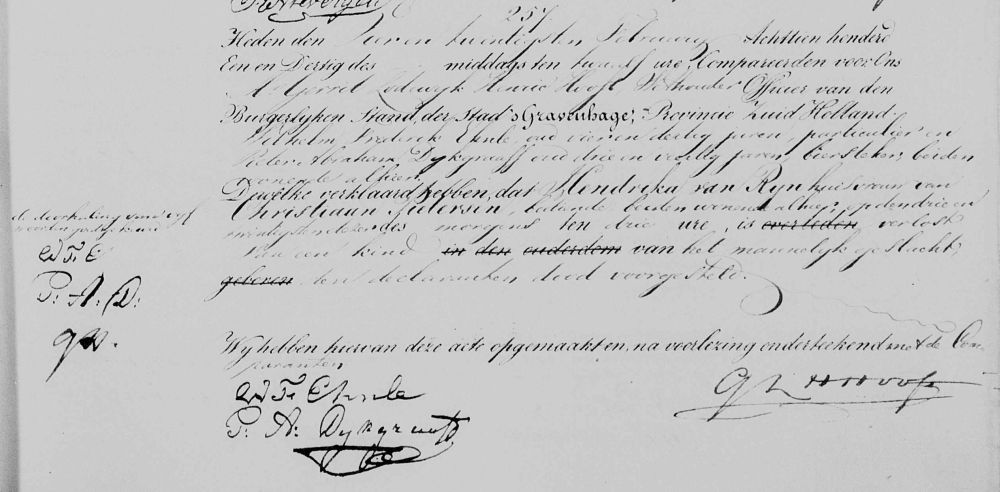 257.
Heden den Vier en twintigsten February Achttien honderd
Een en Dertig des middags ten twaalf ure, Compareerden voor Ons
Mr Gerrit Lodewyk Hendric Hooft, Wethouder Officier van den
Burgerlyken Stand, der Stad 's Gravenhage; Provincie Zuid Holland.
Wilhelm Frederik Ehnle, oud vier en dertig jaren, particulier en
Pieter Abraham Dykgraaff oud drie en veertig jaren, biersteker, beiden
wonende alhier,
Dewelke verklaard hebben, dat Hendrika van Ryn huisvrouw van
Christiaan Pietersen, beiden wonende alhier, op den drie en
twintigsten dezer des morgens ten drie ure, is overleden verlost
Van een kind in den ouderdom van het mannelyk geslacht,
geboren dood voorgesteld.
de doorhaling van vyf
woorden goedgekeurd
W F E
P. A. D.
Wij hebben hiervan deze acte opgemaakt en, na voorlezing onderteekend met de Com-
paranten
W F Ehnle
G L H Hooft
P. A. Dykgraaff